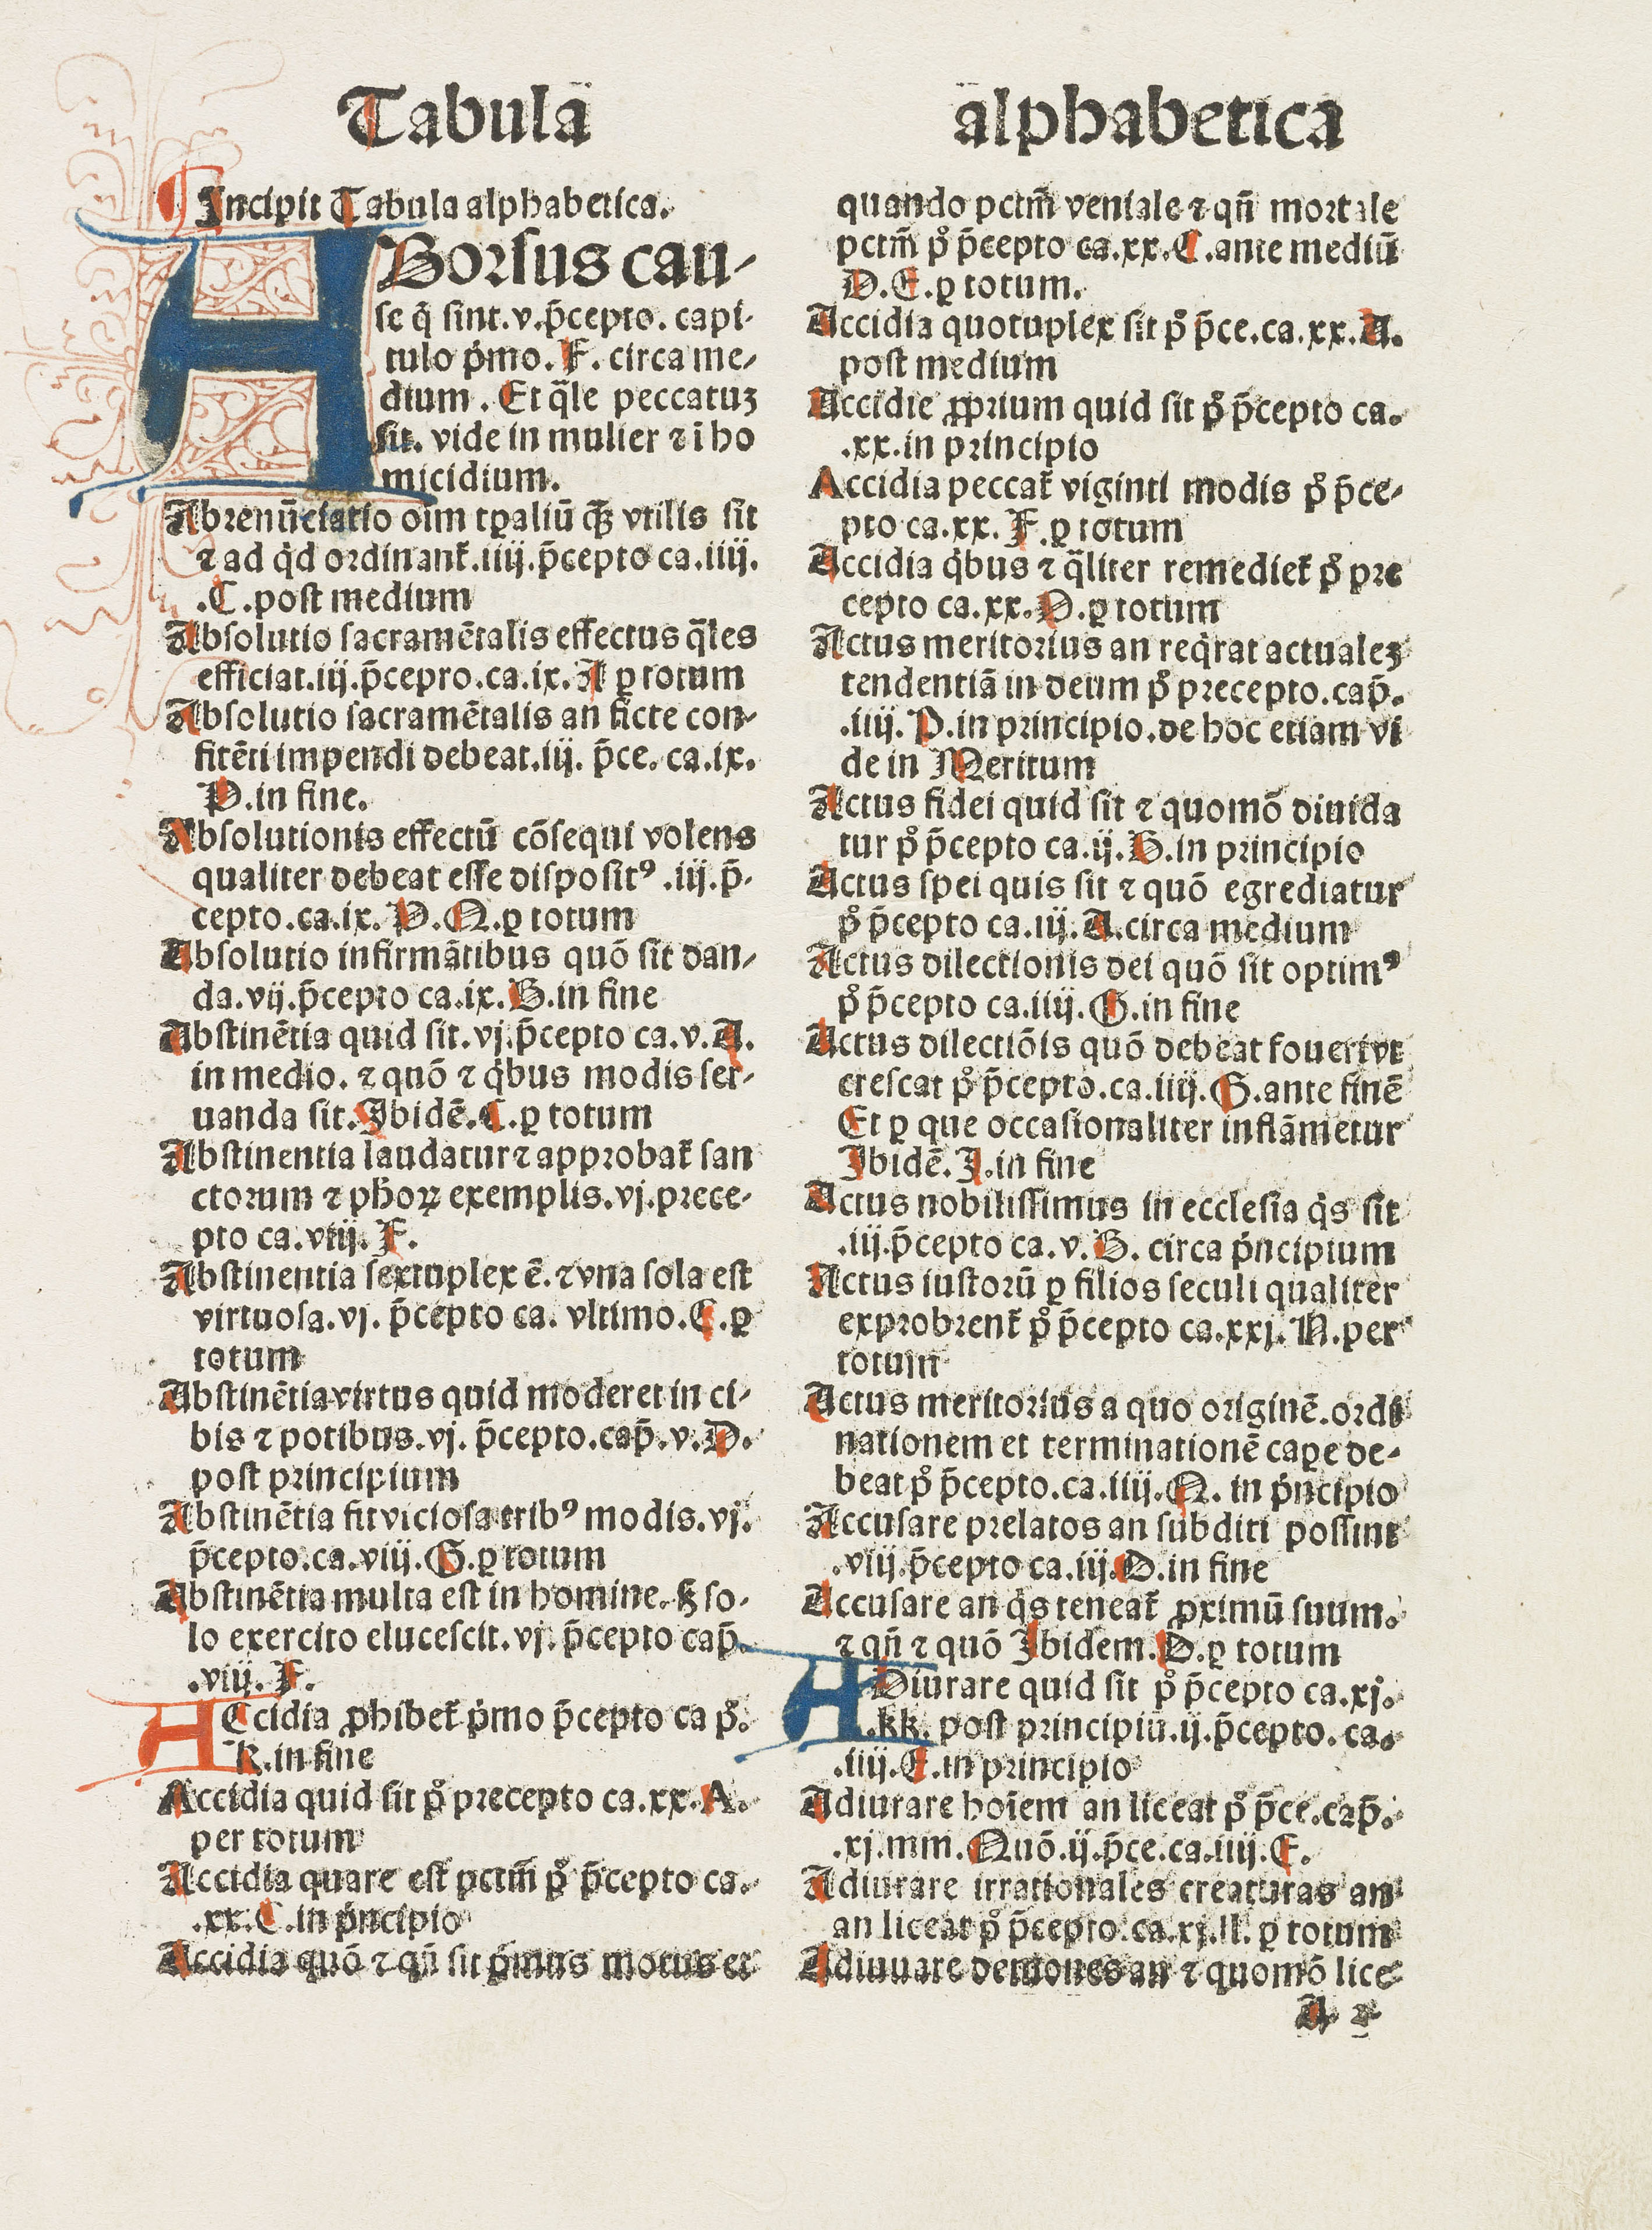 Tabula alphabetica
Incipit Tabula alphabetica.
ABorsus cau-
se q̄ sint. v. p̄cepto. capi-
tulo p̍mo. F. circa me-
dium. Et q̄le peccatuꝫ
sit. vide in mulier ⁊ ī ho
micidium.
Abrenūciatio oīm tꝑaliū ꝙ̄ꝫ vtilis sit
⁊ ad q̍d ordinant᷑. iiij. p̄cepto ca. iiij.
.C. post medium
Absolutio sacramētalis effectus q̄les
efficiat. iij. p̄cepto. ca. ix. A ꝑ totum
Absolutio sacramētalis an ficte con-
fitēti impendi debeat. iij. p̄ce. ca. ix.
P. in fine.
Absolutionis effectū cōsequi volens
qualiter debeat esse dispositꝰ. iij. p̄-
cepto. ca. ix. P. Q. ꝑ totum
Absolutio infirmātibus quō sit dan-
da. vij. p̄cepto ca. ix. B. in fine
Abstinētia quid sit. vj. p̄cepto ca. v. A.
in medio. ⁊ quō ⁊ q̍bus modis ser-
uanda sit. Ibidē. C. ꝑ totum
Abstinentia laudatur ⁊ approbat᷑ san
ctorum ⁊ ph̄oꝝ exemplis. vj. prece-
pto ca. viij. F.
Abstinentia sextuplex ē. ⁊ vna sola est
virtuosa. vj. p̄cepto ca. vltimo. C. ꝑ
totum
Abstinētia virtus quid moderet in ci-
bis ⁊ potibus. vj. p̄cepto. cap̄. v. D.
post principium
Abstinētia fit viciosa tribꝰ modis. vj.
p̄cepto. ca. viij. G. ꝑ totum
Abstinētia multa est in homine. sꝫ so-
lo exercito elucescit. vj. p̄cepto cap̄.
.viij. F.
ACcidia ꝓhibet᷑ p̍mo p̄cepto ca pͦ.
K. in fine
Accidia quid sit pͦ precepto ca. xx. A.
per totum
Accidia quare est pctm̄ pͦ p̄cepto ca.
.xx. C. in p̍ncipio
Accidia quō ⁊ qn̄ sit p̍mus motus et
quando pctm̄ veniale ⁊ qn̄ mortale
pctm̄ pͦ p̄cepto ca. xx. C. ante mediū
D. E. ꝑ totum.
Accidia quotuplex sit pͦ p̄ce. ca. xx. A.
post medium
Accidie ꝓprium quid sit pͦ p̄cepto ca.
.xx. in principio
Accidia peccat᷑ viginti modis pͦ p̄ce-
pto ca. xx. F. ꝑ totum
Accidia q̍bus ⁊ q̄liter remediet᷑ pͦ pre
cepto ca. xx. D. ꝑ totum
Actus meritorius an req̍rat actualeꝫ
tendentiā in deum pͦ precepto. cap̄.
.iiij. P. in principio. de hoc etiam vi
de in Meritum
Actus fidei quid sit ⁊ quomō diuida
tur pͦ p̄cepto ca. ij. B. in principio
Actus spei quis sit ⁊ quō egrediatur
pͦ p̄cepto ca. iij. A. circa medium
Actus dilectionis dei quō sit optimꝰ
pͦ p̄cepto ca. iiij. G. in fine
Actus dilectiōis quō debeat foueri vt
crescat pͦ p̄cepto. ca. iiij. G. ante finē
Et ꝑ que occasionaliter inflāmetur
Ibidē. I. in fine
Actus nobilissimus in ecclesia q̍s sit
.iij. p̄cepto ca. v. B. circa p̍ncipium
Actus iustorū ꝑ filios seculi qualiter
exprobrent᷑ pͦ p̄cepto ca. xxj. N. per
totum
Actus meritorius a quo originē. ordi
nationem et terminationē caꝑe de-
beat pͦ p̄cepto. ca. iiij. Q. in p̍ncipio
Accusare prelatos an subditi possint
.viij. p̄cepto ca. iij. D. in fine
Accusare an q̍s teneat᷑ ꝓximū suum.
⁊ qn̄ ⁊ quō Ibidem. D. ꝑ totum
ADiurare quid sit pͦ p̄cepto ca. xj.
.kk. post principiū. ij. p̄cepto. ca.
.iiij. E. in principio
Adiurare hoīem an liceat pͦ p̄ce. cap̄.
.xj. mm. Quō. ij. p̄ce. ca. iiij. E.
Adiurare irrationales creaturas an
an liceat pͦ p̄cepto. ca. xj. ll. ꝑ totum
Adiuuare demones an ⁊ quomō lice-
A 2